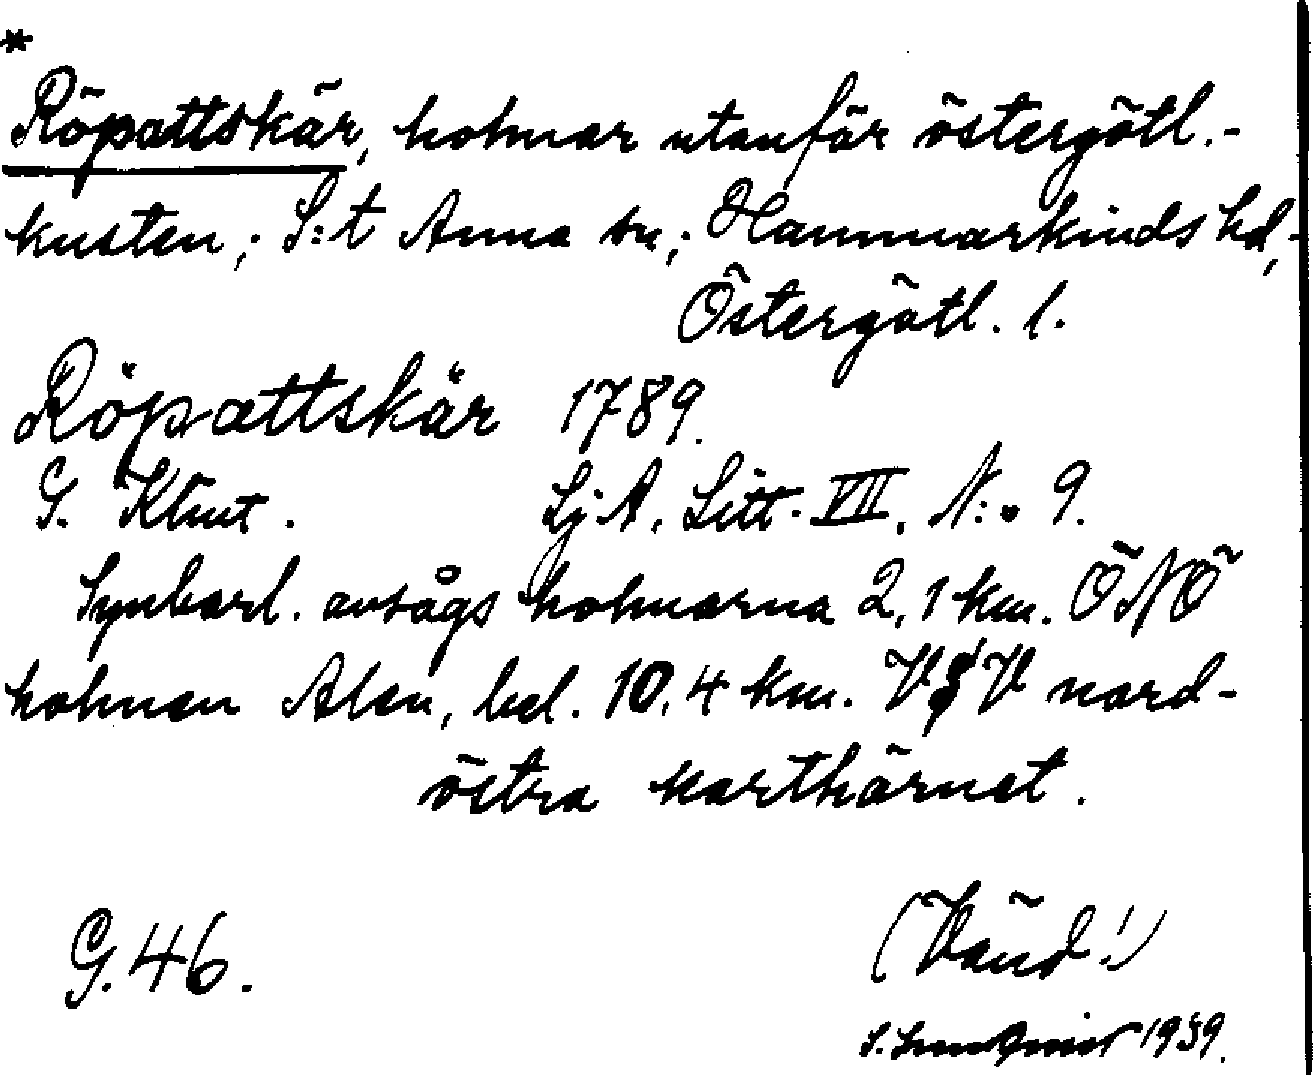 *
Röpattskär, holmar utanför östergötl.-
kusten; S:t Anna sn; Hammarkinds hd,-
Östergötl. l.
Röpattskär 1789.
G. Klint. SjA, Litt. VII, N:o 9.
Synbarl. avsågs holmarna 2,1 km. ÖNÖ
holmen Alen, bel. 10,4 km. VSV nord-
östra karthörnet.
G. 46.
(Vänd!)
1939.